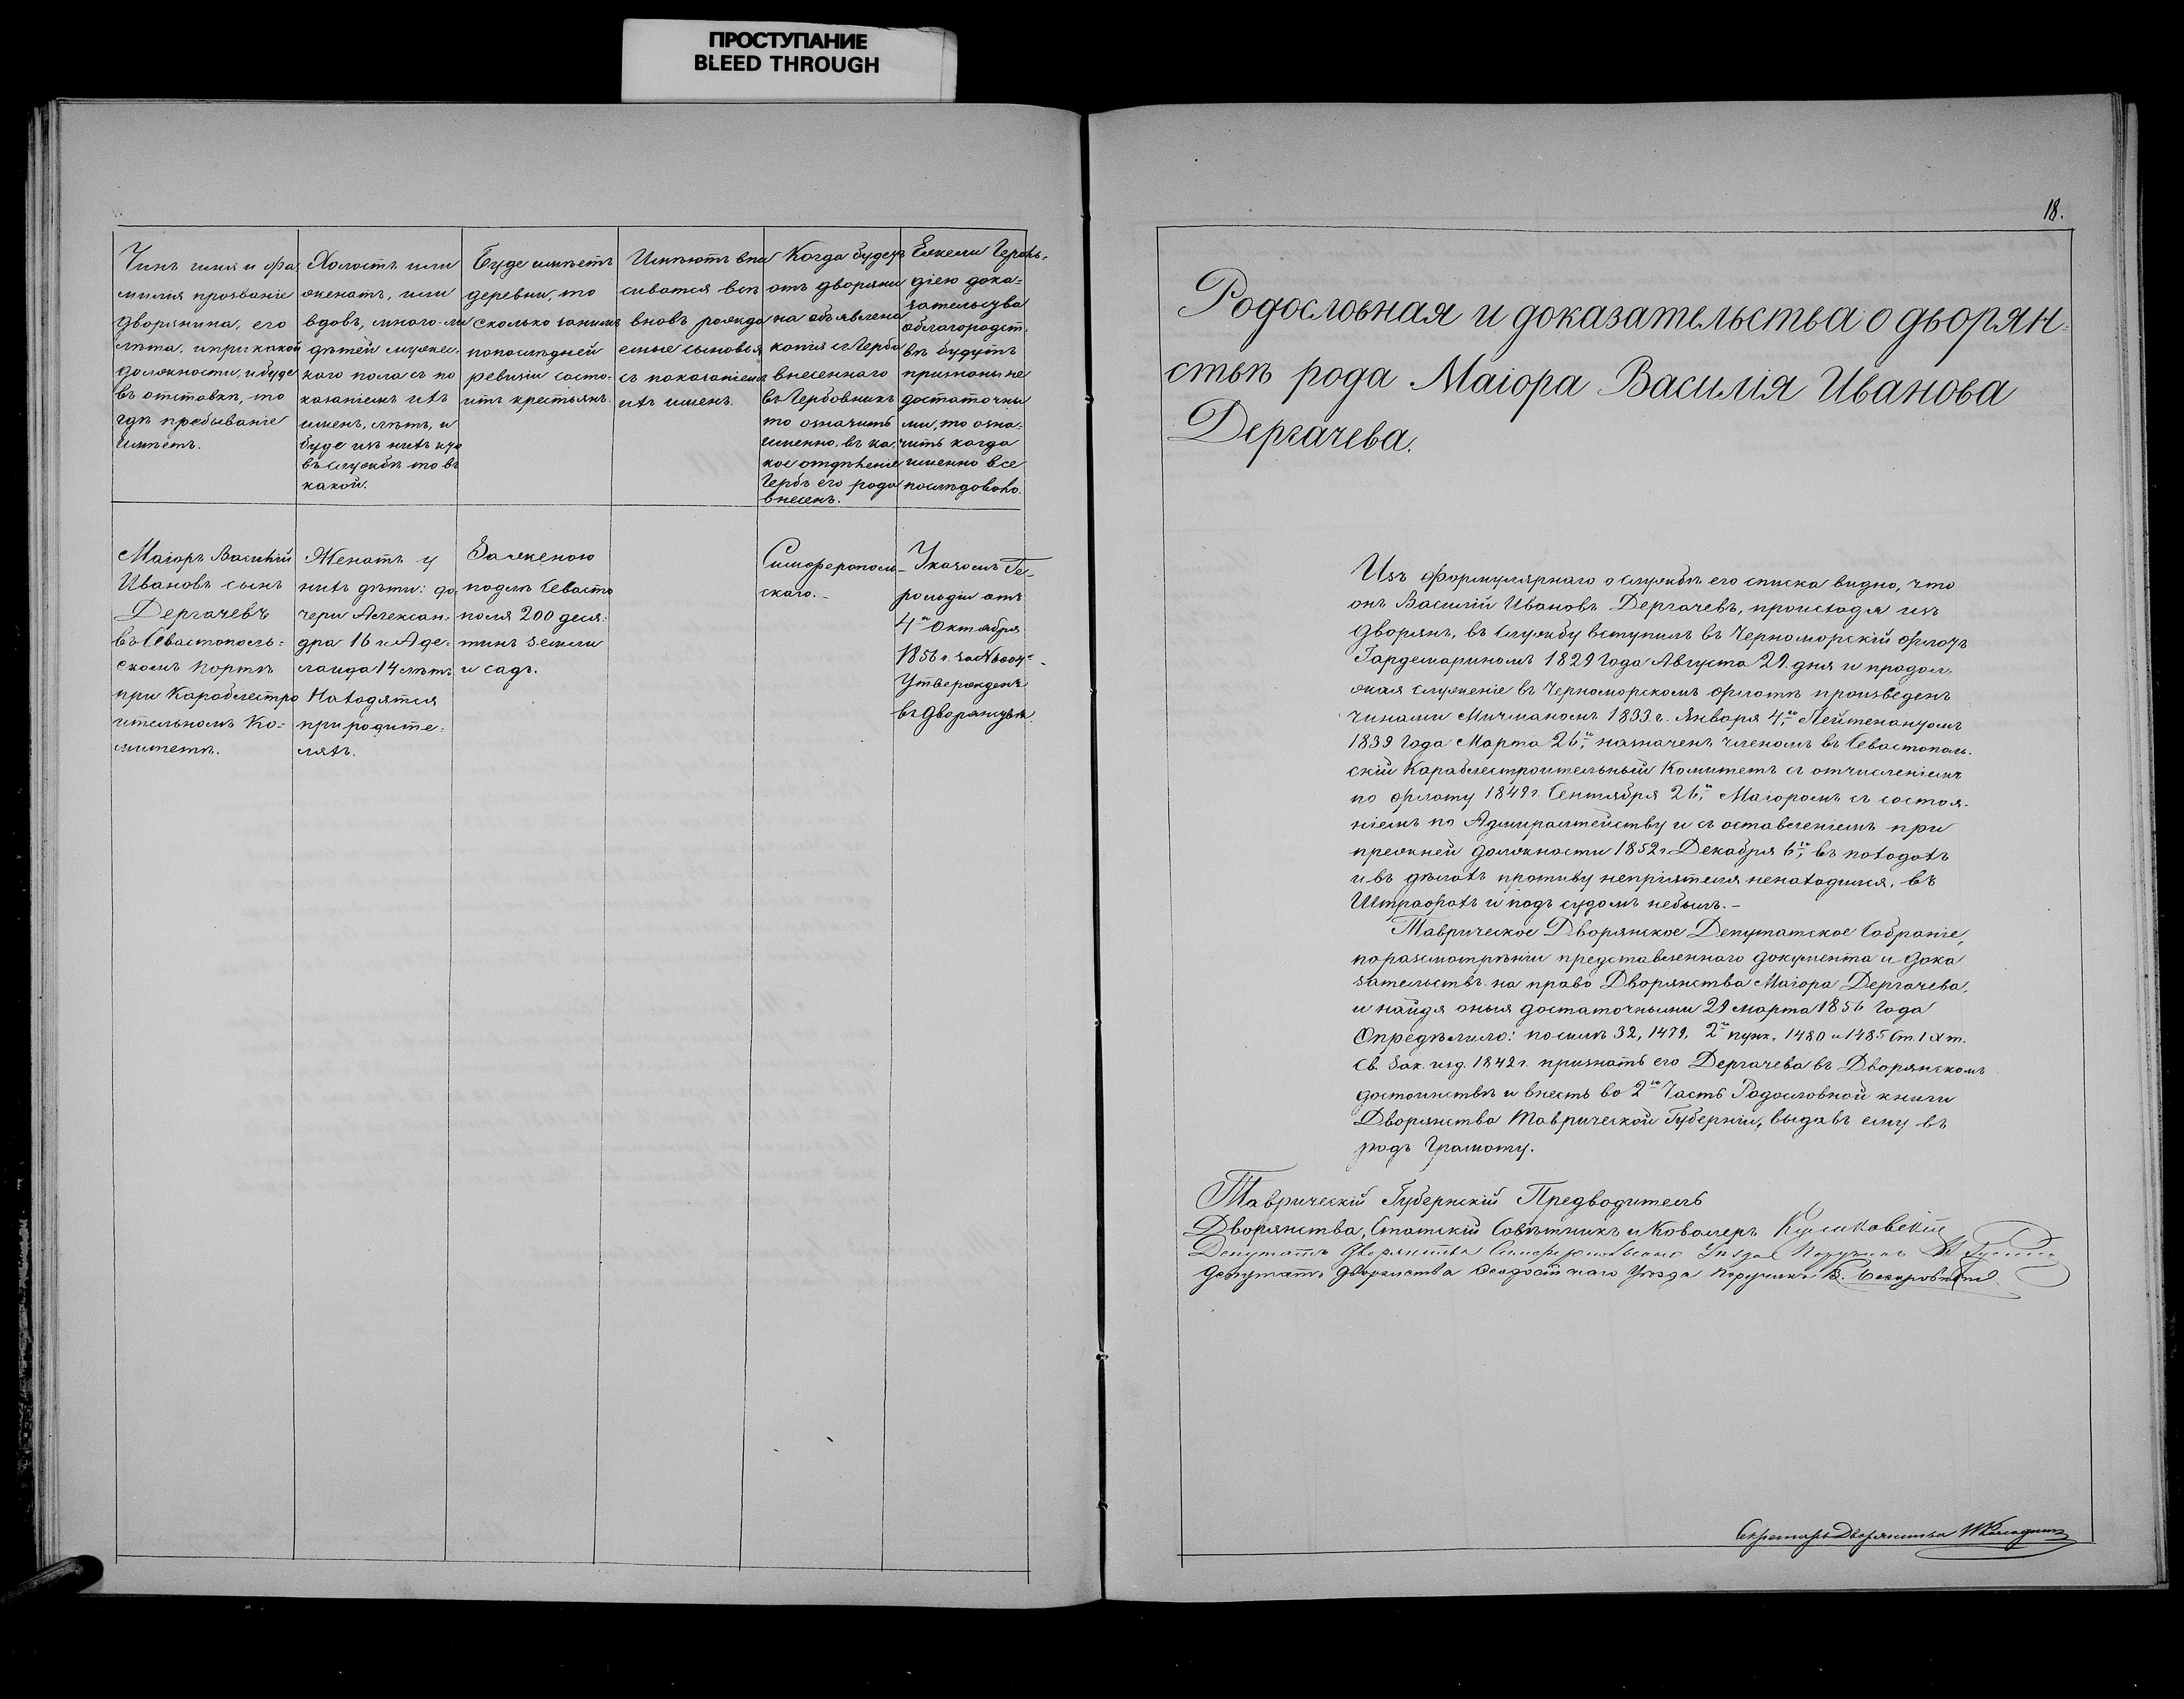 ПРОСТУПАНИЕ
BLEED THROUGH
Чинъ имя и фа
милія прозваніе
дворянина, его
лѣта, и при какой
должности, и буде
въ отставкѣ, то
гдѣ пребываніе
имѣетъ.
Холостъ или
женатъ, или
вдовъ, много-ли
дѣтей мужес-
каго пола съ по
казаніемъ ихъ
именъ, лѣтъ, и
буде изъ нихъ кто
въ службѣ то въ
какой.
Буде имѣетъ
деревни, то
сколько за нимъ
по послѣдней
ревизіи состо-
итъ крестьянъ.
Имѣютъ впи
сыватся всѣ
вновь рожда
емые сыновья
съ показаніемъ
ихъ именъ.
Когда будетъ
отъ дворяни
на объявлена
копія съ Герба
внесеннаго
въ Гербовникъ
то означить
именно, въ ка-
кое отдѣленіе
Гербъ его рода
внесенъ.
Ежели Героль-
діею дока-
зательства
о благородст-
вѣ будутъ
признаны не
достаточны
ми, то озна-
чить когда
именно все
послѣдовало.
Маіоръ Василій
Ивановъ сынъ
Дергачевъ
въ Севастополь-
скомъ портѣ
при Караблестро
ительномъ Ко-
митетѣ.
Женатъ у
нихъ дѣти: до-
чери Алексан-
дра 16 и Аде-
лаида 14 лѣтъ
Находятся
при родите-
ляхъ.
За женою
подлѣ Севасто
поля 200 деся-
тинъ земли
и садъ.
Симферополь-
скаго.-
Указомъ Ге-
рольдіи отъ
4го Октября
1856 г. за №
Утвержденъ
въ Дворянствѣ.
18.
Родословная и доказательства о дворян-
ствѣ рода Маіора Василія Иванова
Дергачева.
Изъ формулярнаго о службѣ его списка видно, что
онъ Василій Ивановъ Дергачевъ, происходя изъ
дворянъ, въ службу вступилъ въ Черноморскій флотъ
Гардемариномъ 1829 года Августа 29. дня и продол-
жая служеніе въ Черноморскомъ флотѣ произведенъ
чинами Мичманомъ 1833 г. Января 4го, Лейтенантомъ
1839 года Марта 26го, назначенъ членомъ въ Севастополь-
скій Караблестроительный Комитетъ съ отчисленіемъ
по флоту 1849 г. Сентября 26го, Маіоромъ съ состоя-
ніемъ по Адмиралтейству и съ оставленіемъ при
прежней должности 1852 г. Декабря 6го, въ походахъ
и въ дѣлахъ противу непріятеля ненаходился, въ
Штрафахъ и подъ судомъ небылъ.-
Таврическое Дворянское Депутатское Собраніе,
по разсмотрѣніи представленнаго документа и дока
зательствъ на право Дворянства Маіора Дергачева,
и найдя оныя достаточными 29 марта 1856 года
Опредѣлило: по силѣ 32, 1479, 2го пунк., 1480 и 1485 ст. IX т.
Св. Зак. изд. 1842 г. признать его Дергачева въ Дворянскомъ
достоинствѣ и внесть во 2ю Часть Родословной книги
Дворянства Таврической Губерніи, выдавъ ему въ
родъ Грамоту.
Таврическій Губернскій Предводитель
Дворянства, Статскій Совѣтникъ и Кавалеръ
Депутатъ Дворянства Симферопольскаго Уѣзда Поручикъ
Депутатъ дворянства Ѳеодосійскаго Уѣзда Поручикъ
Секретарь Дворянства